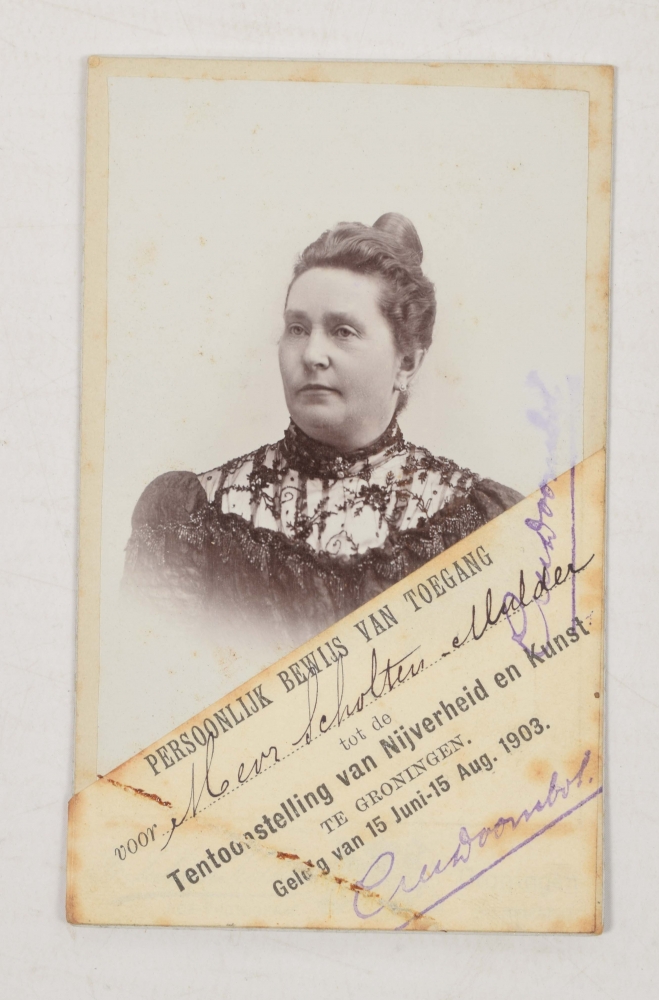 PERSOONLIJK BEWIJS VAN TOEGANG
voor Mevr Scholten-Mulder
tot de
Tentoonstelling van Nijverheid en Kunst
TE GRONINGEN.
Geldig van 15 Juni-15 Aug. 1903.